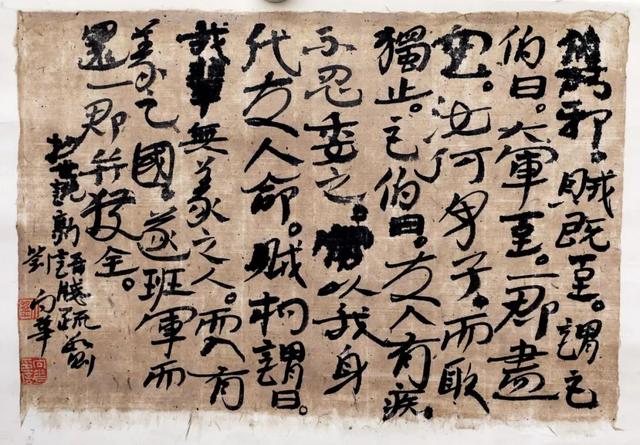 邪。賊既至。謂巨
伯曰。大軍至。一郡盡
空。汝何男子。而敢
獨止。巨伯曰。友人有疾。
不忍委之。寧以我身
代友人命。賊相謂曰。
我輩無義之人。而入有
義之國。遂班軍而
還一郡並獲全。
抄世說新語牋疏
劉向華